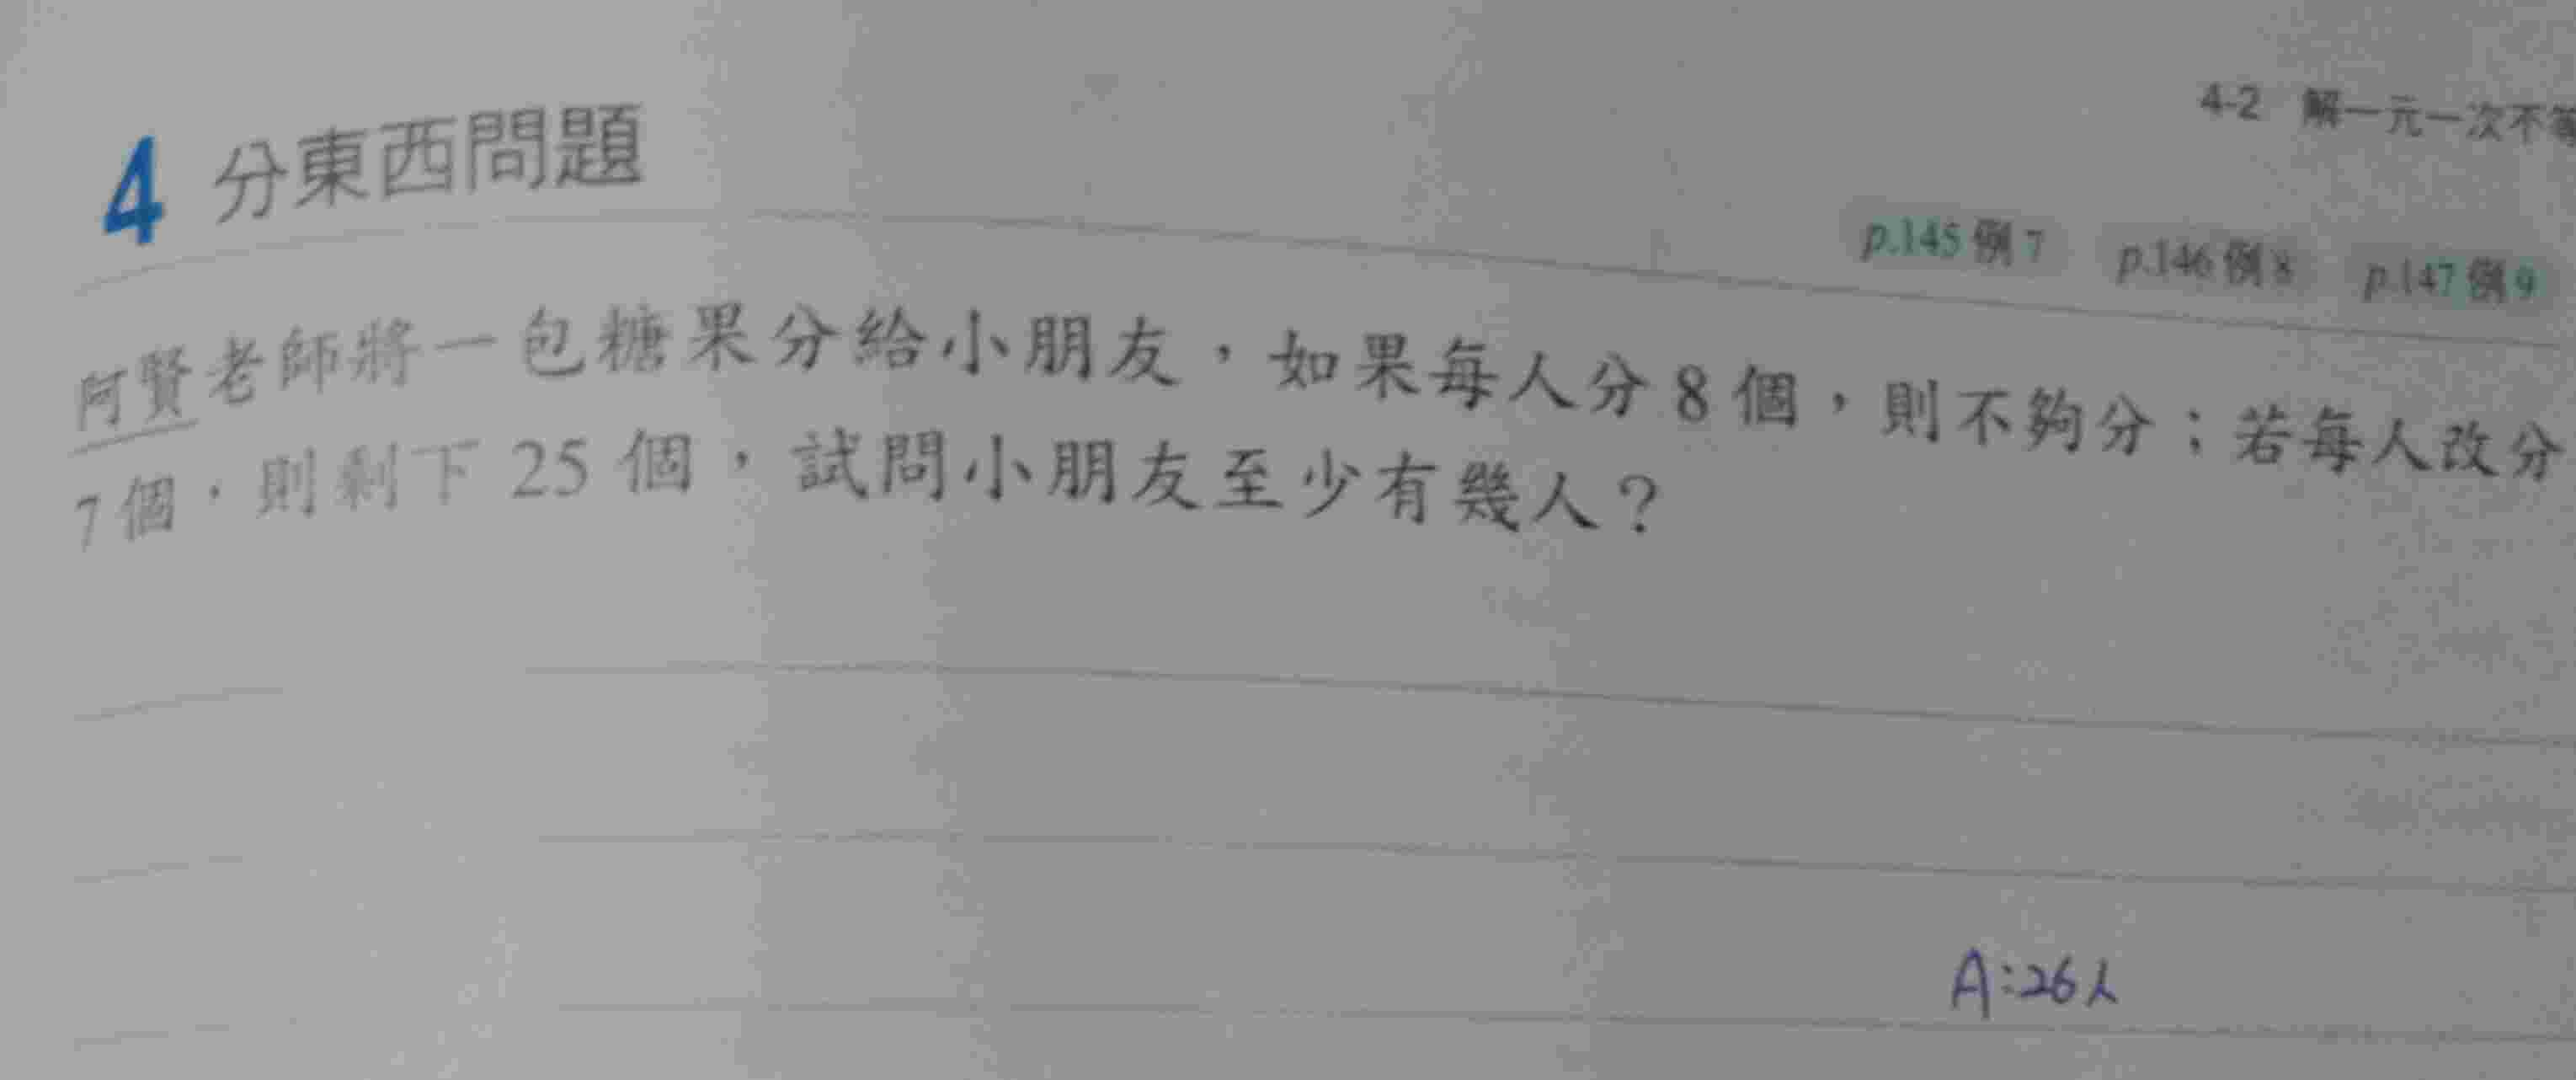 4-2 解一元一次不等
4 分東西問題
p.145 例 7 p.146 例 8 p.147 例 9
阿賢老師將一包糖果分給小朋友，如果每人分 8 個，則不夠分；若每人改分
7 個，則剩下 25 個，試問小朋友至少有幾人？
A:26人